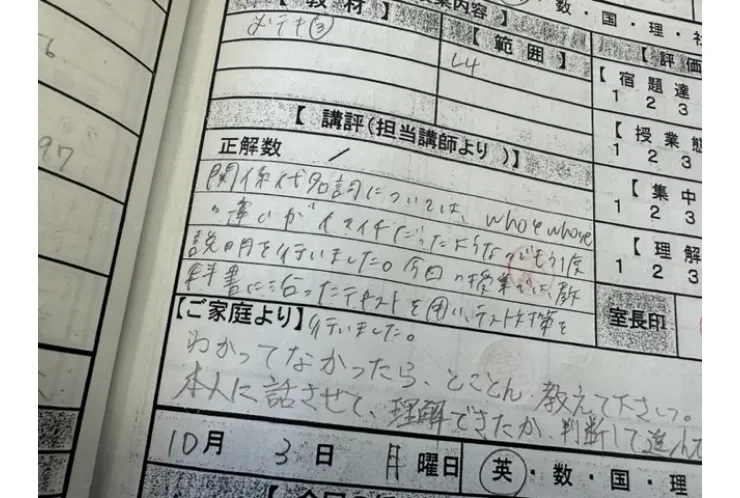 業内容】
・数・国・理・社
【教材】
【範囲】
【評価
メテキ③
L4
【宿題達
1 2 3
【講評(担当講師より)】
【授業態
1 2 3
正解数 /
関係代名詞については、whoとwhose
の違いがイマイチだったようなのでもう1度
説明を行いました。今回の授業では、教
科書に沿ったテキストを用い、テスト対策を
行いました。
【集中
1 2 3
【理解
1 2 3
室長印
【ご家庭より】
わかってなかったら、とことん教えて下さい。
本人に話させて、理解できたか、判断して進んで
10月 3日 月曜日
英・数・国・理
97
6